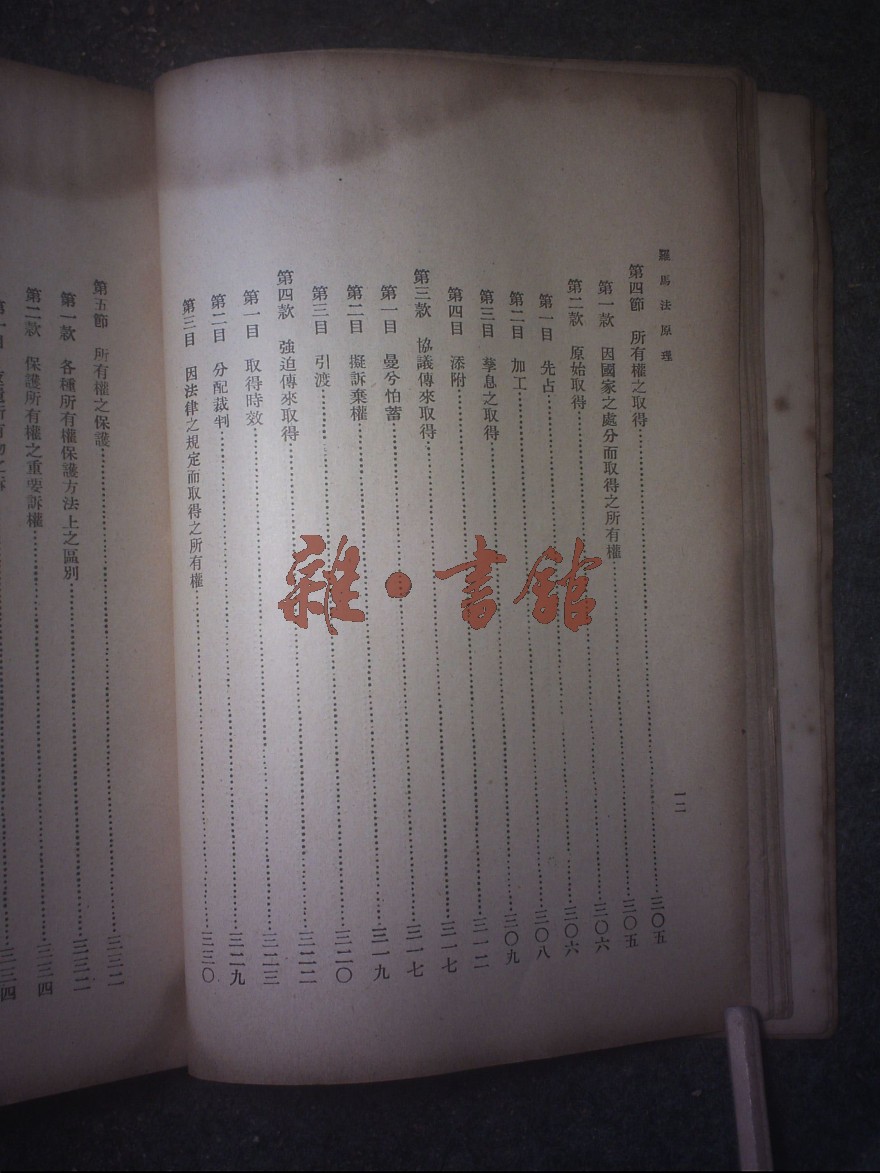 羅馬法原理 一二
第四節 所有權之取得……三〇五
第一款 因國家之處分而取得之所有權……三〇五
第二款 原始取得……三〇六
第一目 先占……三〇六
第二目 加工……三〇八
第三目 孳息之取得……三〇九
第四目 添附……三一二
第三款 協議傳來取得……三一七
第一目 曼兮怕蓄……三一七
第二目 擬訴棄權……三一九
第三目 引渡……三二〇
第四款 強迫傳來取得……三二二
第一目 取得時效……三二三
第二目 分配裁判……三二九
第三目 因法律之規定而取得之所有權……三三〇
第五節 所有權之保護……三三二
第一款 各種所有權保護方法上之區別……三三二
第二款 保護所有權之重要訴權……三三四
第一目……三三四
雜·書館